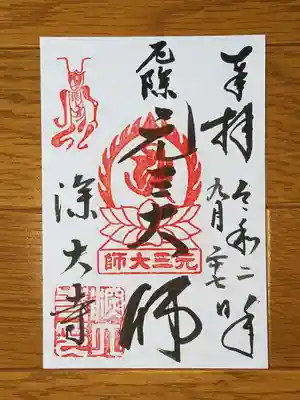 奉拝
令和二年
九月二十七日
厄除
元三大師
元三大師
深大寺